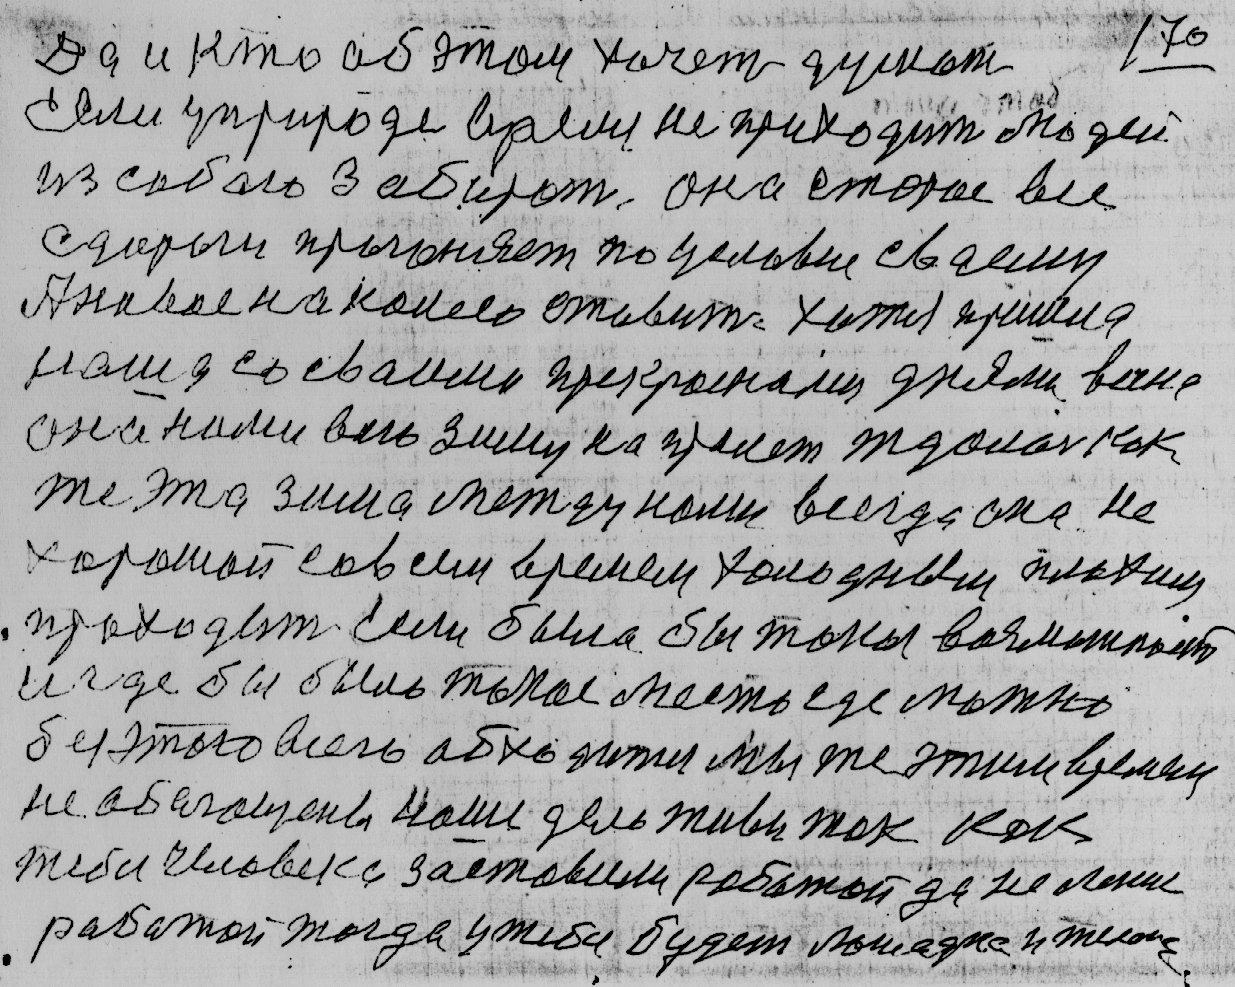 170
Да и кто об этом хочет думать
Если у природе время не приходит людей
из собою забирать. она старое все
с дороги прогоняет по условие своему
А новое на колесо ставит. Хотя пришла
наша со своими прекрасными днями
она нами всю зиму как
же эта зима между нами всегда она не
хорошой совсем время холодным плохим
проходит Если была бы такая возможность
и где бы было такое место где можно
без этого всего обходится мы же этим время
не обогащены наше дело живи так как
тебя человека заставили работой да не лени
работой тогда у тебя будет лошадка и телега